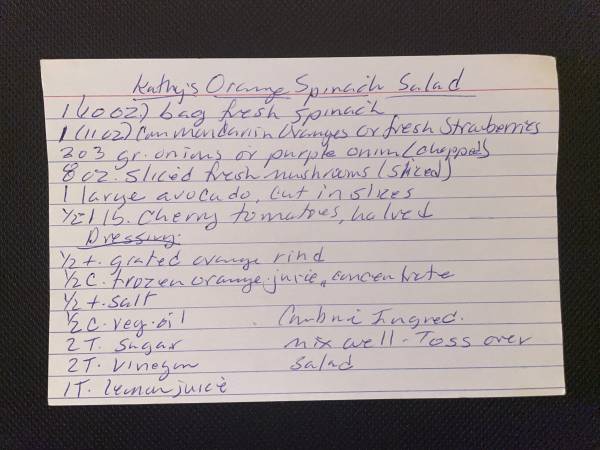 Kathy's Orange Spinach Salad
1 (10 oz) bag fresh spinach
1 (11 oz) can mandarin oranges or fresh strawberries
2 o 3 gr. onions or purple onion (chopped)
8 oz. sliced fresh mushrooms (sliced)
1 large avocado, cut in slices
1/2 lb. cherry tomatoes, halved
Dressing:
1/2 t. grated orange rind
1/2 C. frozen orange juice concentrate
1/2 t. salt
1/2 C. veg. oil Combine Ingred.
2 T. Sugar mix well - Toss over
2 T. Vinegar salad
1 T. lemon juice